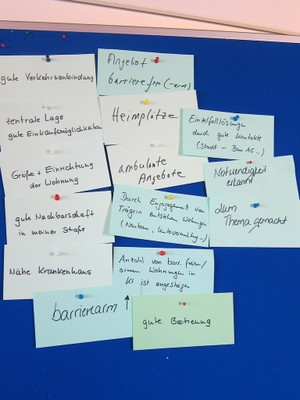 gute Verkehrsanbindung
zentrale Lage
gute Einkaufsmöglichkeiten
Größe + Einrichtung
der Wohnung
gute Nachbarschaft
in meiner Straße
Nähe Krankenhaus
barrierearm ↑
Angebot
barrierefrei (-arm)
Heimplätze
ambulante
Angebote
Durch Engagement von
Trägern entstehen Wohnungen
(Neubau,
Anzahl von barr. freien/
armen Wohnungen in
ist angestiegen
gute Betreuung
Einzelfalllösungen
durch gute Kontakte
(Stadt – Bau AG...)
Notwendigkeit
erkannt
zum
Thema gemacht